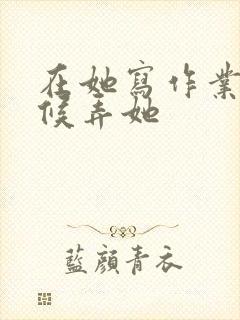 在她寫作業
候弄她
藍顏青衣